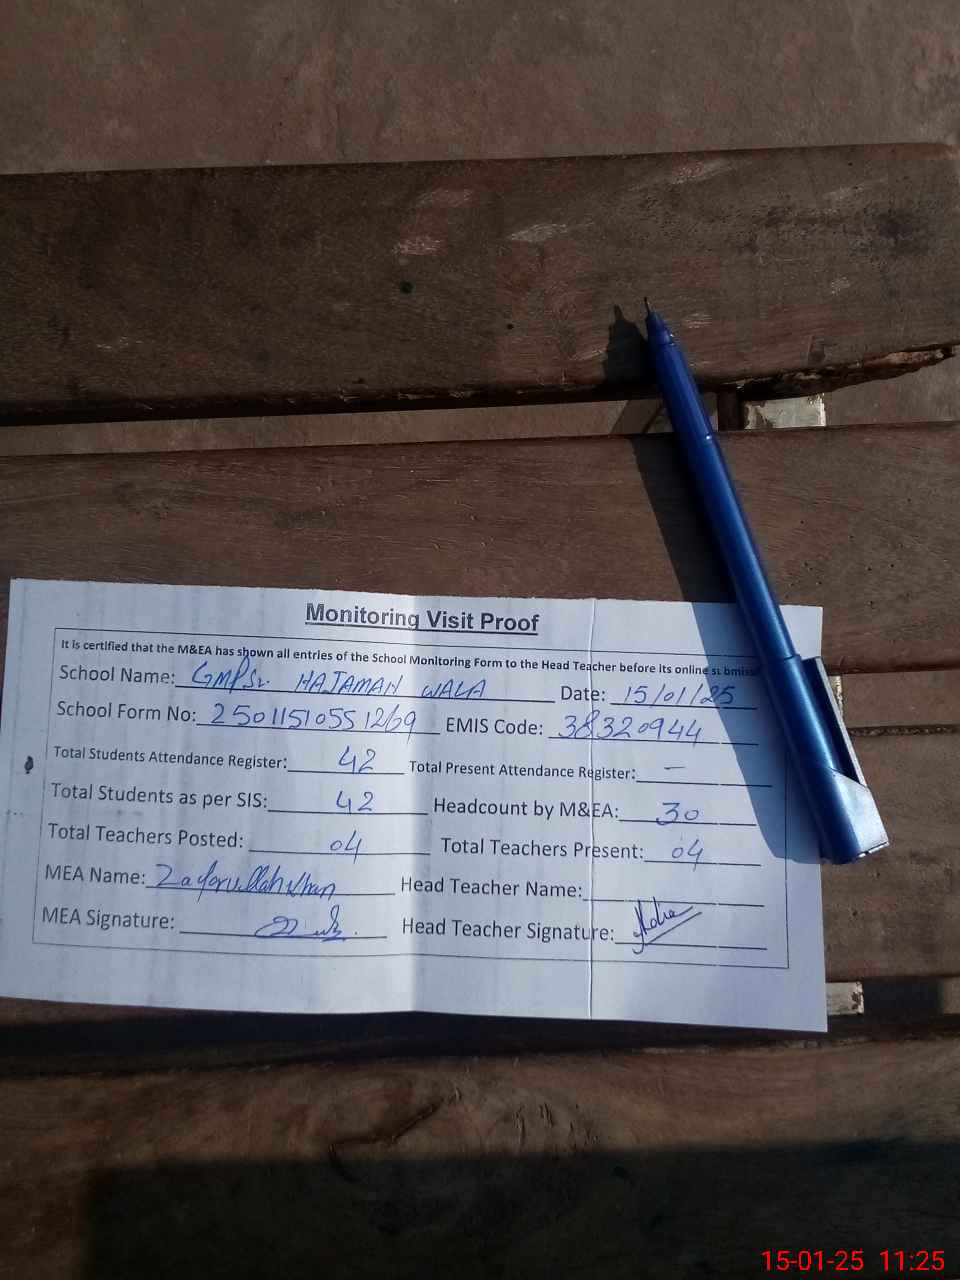 Monitoring Visit Proof
It is certified that the M&EA has shown all entries of the School Monitoring Form to the Head Teacher before its online submiss
School Name: GMPS. HAJAMAN WALA Date: 15/01/25
School Form No: 2501151055 12/69 EMIS Code: 38320944
Total Students Attendance Register: 42 Total Present Attendance Register: —
Total Students as per SIS: 42 Headcount by M&EA: 30
Total Teachers Posted: 04 Total Teachers Present: 04
MEA Name: Zafarullah Khan Head Teacher Name:
MEA Signature: Head Teacher Signature:
15-01-25 11:25